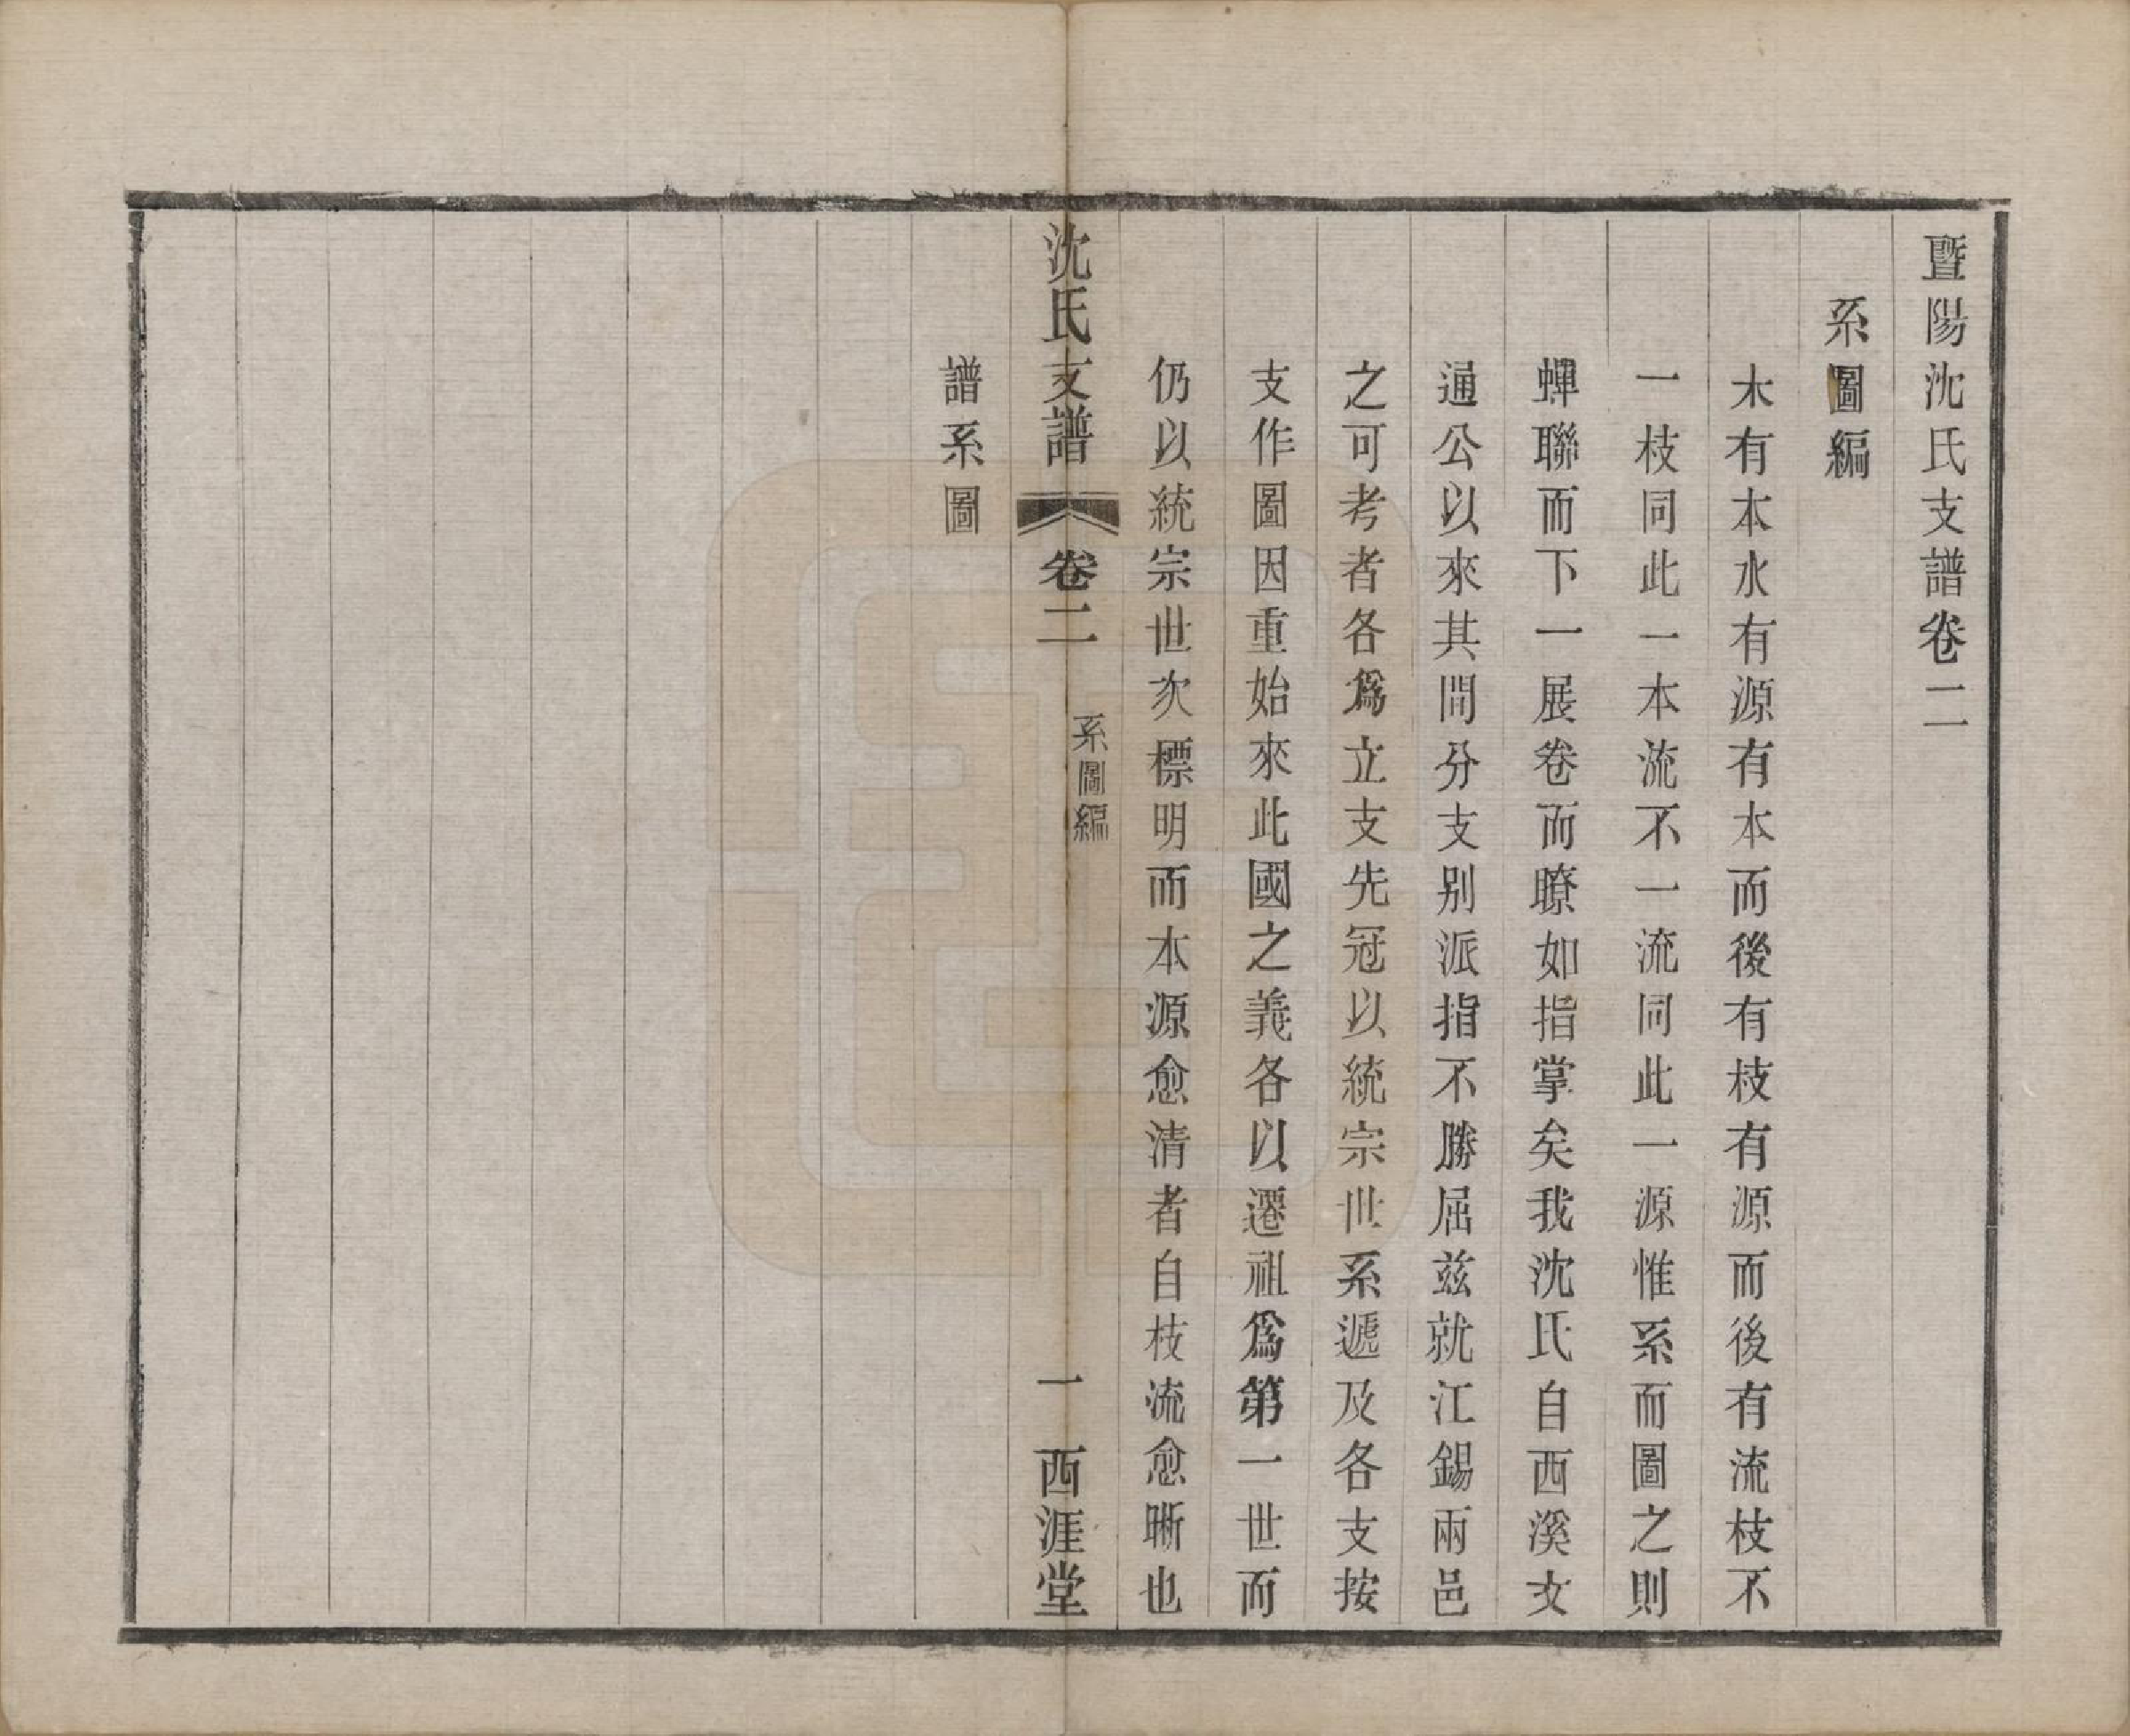 暨陽沈氏支譜卷二
系圖編
木有本水有源有本而後有枝有源而後有流枝不
一枝同此一本流不一流同此一源惟系而圖之則
蟬聯而下一展卷而瞭如指掌矣我沈氏自西溪文
通公以來其間分支别派指不勝屈兹就江錫兩邑
之可考者各爲立支先冠以統宗世系遞及各支按
支作圖因重始來此國之義各以遷祖爲第一世而
仍以統宗世次標明而本源愈清者自枝流愈晰也
沈氏支譜 卷二 系圖編 一 西涯堂
譜系圖